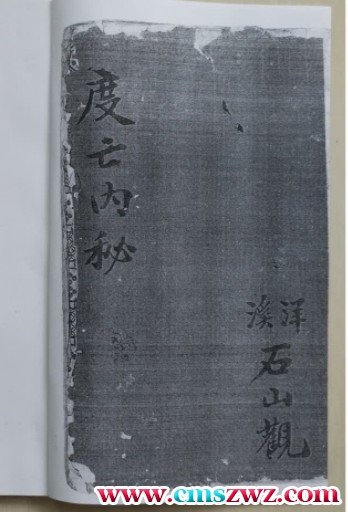 度亡內秘
洋溪
石山觀
www.cmszwz.com